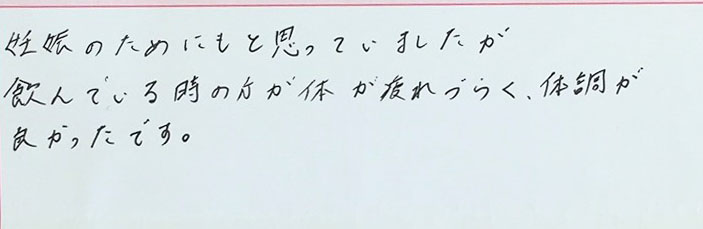 妊娠のためにもと思っていましたが
飲んでいる時の方が体が疲れづらく、体調が
良かったです。